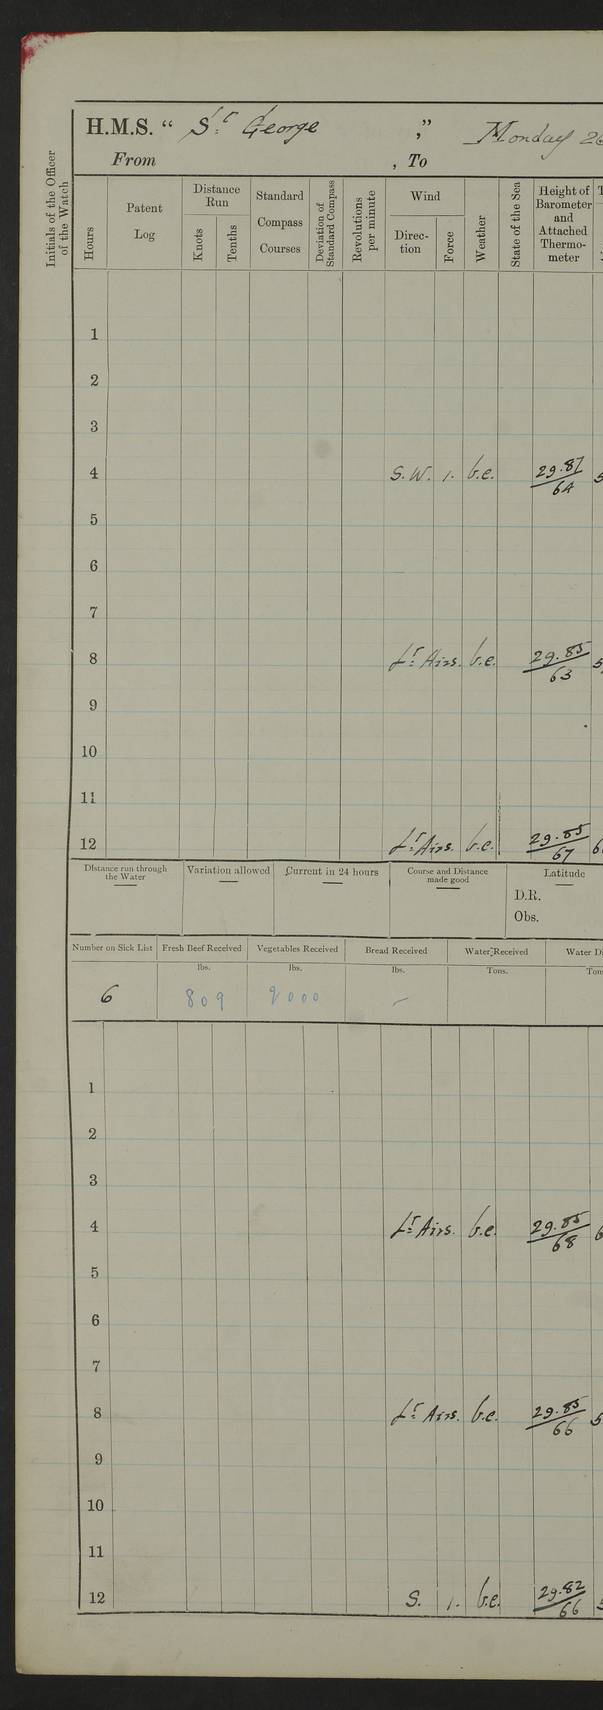 H.M.S. “ Sᵗ George ,” Monday 26
From , To
Initials of the Officer of the Watch
Hours
Patent Log
Distance Run
Knots
Tenths
Standard Compass Courses
Deviation of Standard Compass
Revolutions per minute
Wind
Direc-tion
Force
Weather
State of the Sea
Height of Barometer and Attached Thermo-meter
1
2
3
4 S.W. 1. b.c. 29.87/64
5
6
7
8 Lᵗ Airs. b.c. 29.85/63
9
10
11
12 Lᵗ Airs. b.c. 29.85/67
Distance run through the Water
Variation allowed
Current in 24 hours
Course and Distance made good
Latitude
D.R.
Obs.
Number on Sick List Fresh Beef Received Vegetables Received Bread Received Water Received Water
lbs. lbs. lbs. Tons.
6 809 2000 -
1
2
3
4 Lᵗ Airs. b.c. 29.85/68
5
6
7
8 Lᵗ Airs. b.c. 29.85/66
9
10
11
12 S. 1. b.c. 29.82/66